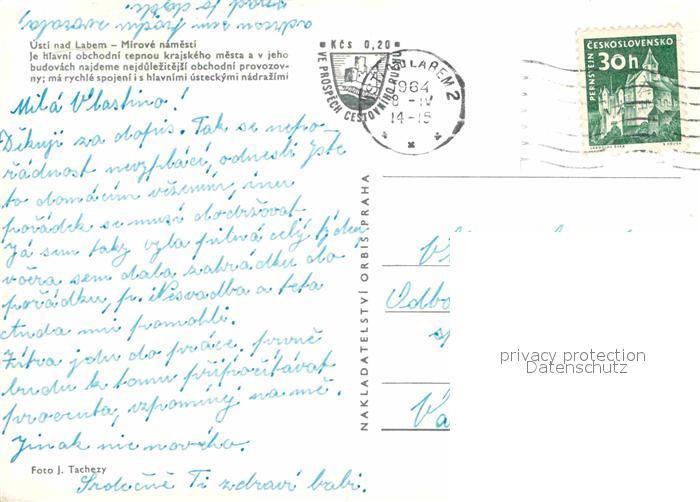 Ústí nad Labem – Mírové náměstí
Je hlavní obchodní tepnou krajského města a v jeho
budovách najdeme nejdůležitější obchodní provozov-
ny; má rychlé spojení i s hlavními ústeckými nádražími
Kčs 0,20
VE PROSPĚCH CESTOVNÍHO RUCHU
LABEM 2
1964
8 -IV
14-15
ČESKOSLOVENSKO
30h
PERNŠTEJN
Milá Vlastino!
Děkuji za dopis. Tak se nepo-
řádnost nevyplácí, odnesli jste
to domácím vězením, inu
pořádek se musí dodržovat.
Já sem taky byla pilná celý týden
včera sem dala zahrádku do
pořádku, p. Nesvadba a teta
Anda mi pomohli.
Zítra jdu do práce, prvně
budu k tomu připočítávat
procenta, vzpomínej na mě.
Jinak nic nového.
Srdečně Ti zdraví babi.
Foto J. Tachezy
NAKLADATELSTVÍ ORBIS PRAHA
Odbo
privacy protection
Datenschutz